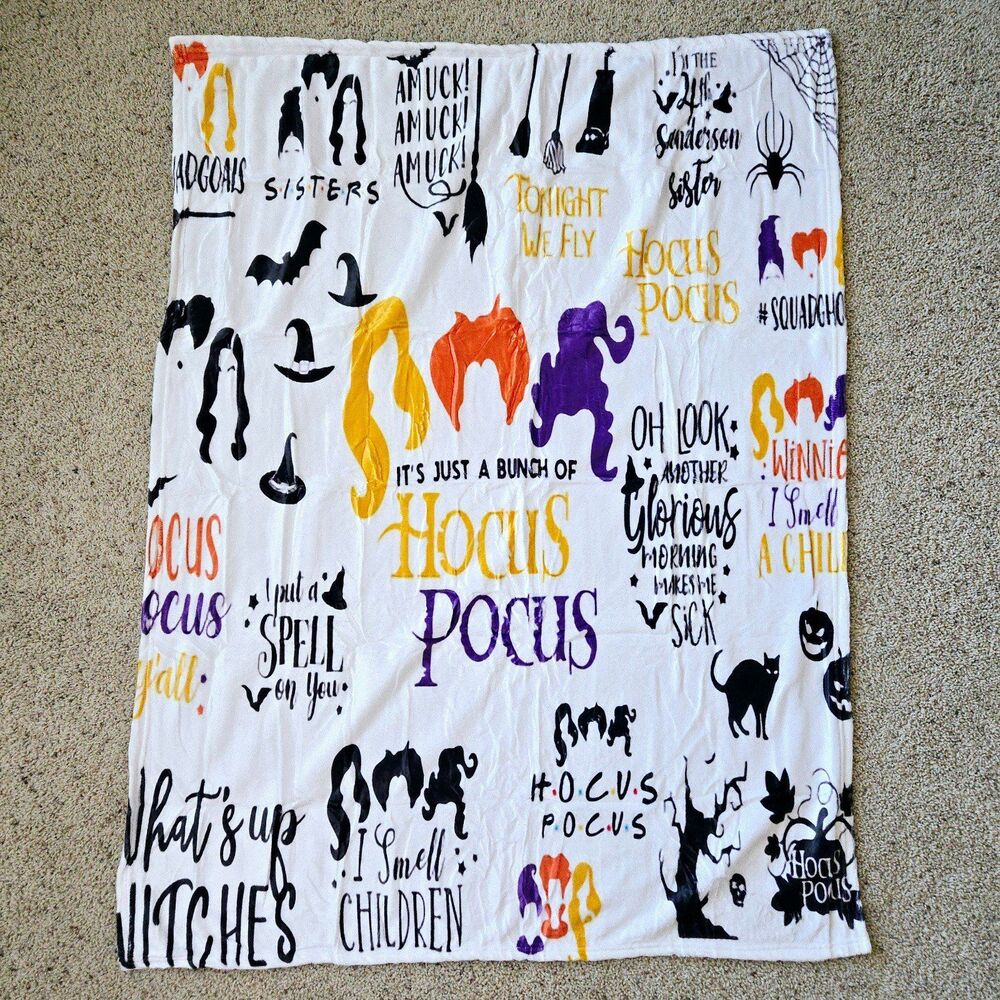 ADGOALS
S·I·S·T·E·R·S
AMUCK!
AMUCK!
AMUCK!
TONIGHT
WE FLY
I'M THE
4th
Sanderson
Sister
HOCUS
POCUS
#SQUADGHO
IT'S JUST A BUNCH OF
HOCUS
POCUS
OH LOOK
ANOTHER
Glorious
MORNING
MAKES ME
SICK
WINNIE
I Smell
A CHILD
OCUS
ocus
y'all
I put a
SPELL
on you
What's up
WITCHES
I Smell
CHILDREN
H·O·C·U·S
P·O·C·U·S
HOCUS
POCUS